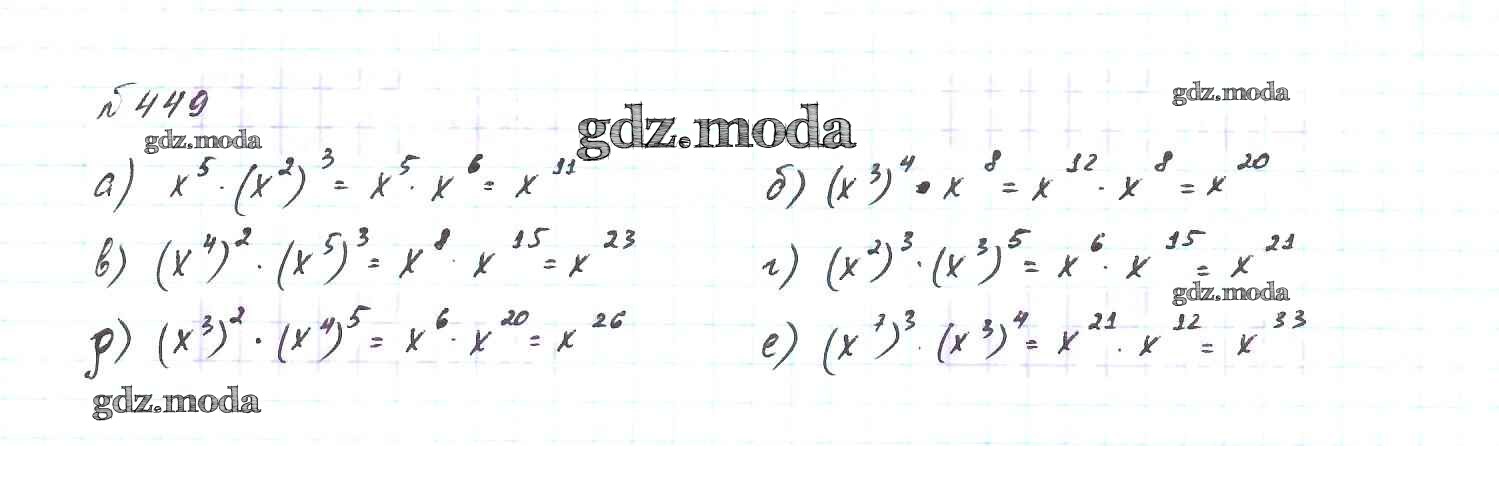 № 449
gdz.moda
gdz.moda
gdz.moda
а) x⁵ · (x²)³ = x⁵ · x⁶ = x¹¹
б) (x³)⁴ · x⁸ = x¹² · x⁸ = x²⁰
в) (x⁴)² · (x⁵)³ = x⁸ · x¹⁵ = x²³
г) (x²)³ · (x³)⁵ = x⁶ · x¹⁵ = x²¹
gdz.moda
д) (x³)² · (x⁴)⁵ = x⁶ · x²⁰ = x²⁶
е) (x⁷)³ · (x³)⁴ = x²¹ · x¹² = x³³
gdz.moda